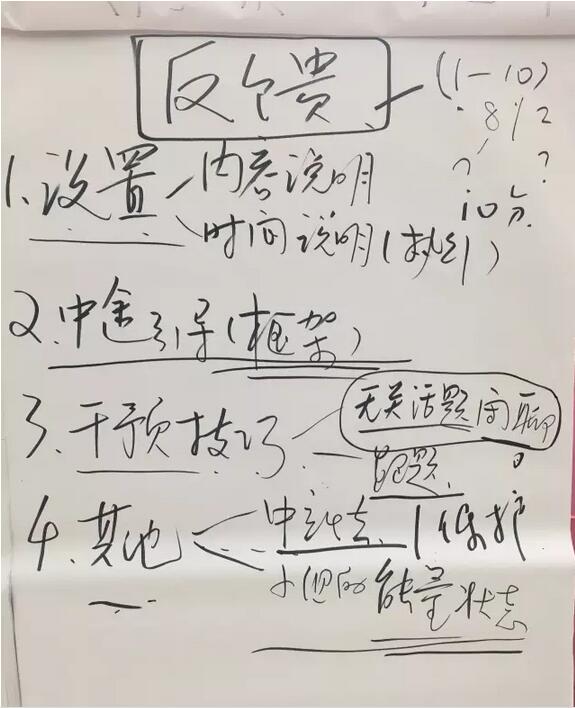 反馈 (1-10)
8 / 2
? ?
10分
1. 设置 内容说明
时间说明(执行)
2. 中途引导(框架)
3. 干预技巧 无关话题闲聊
跑题
4. 其他 中立性 保护
能量状态